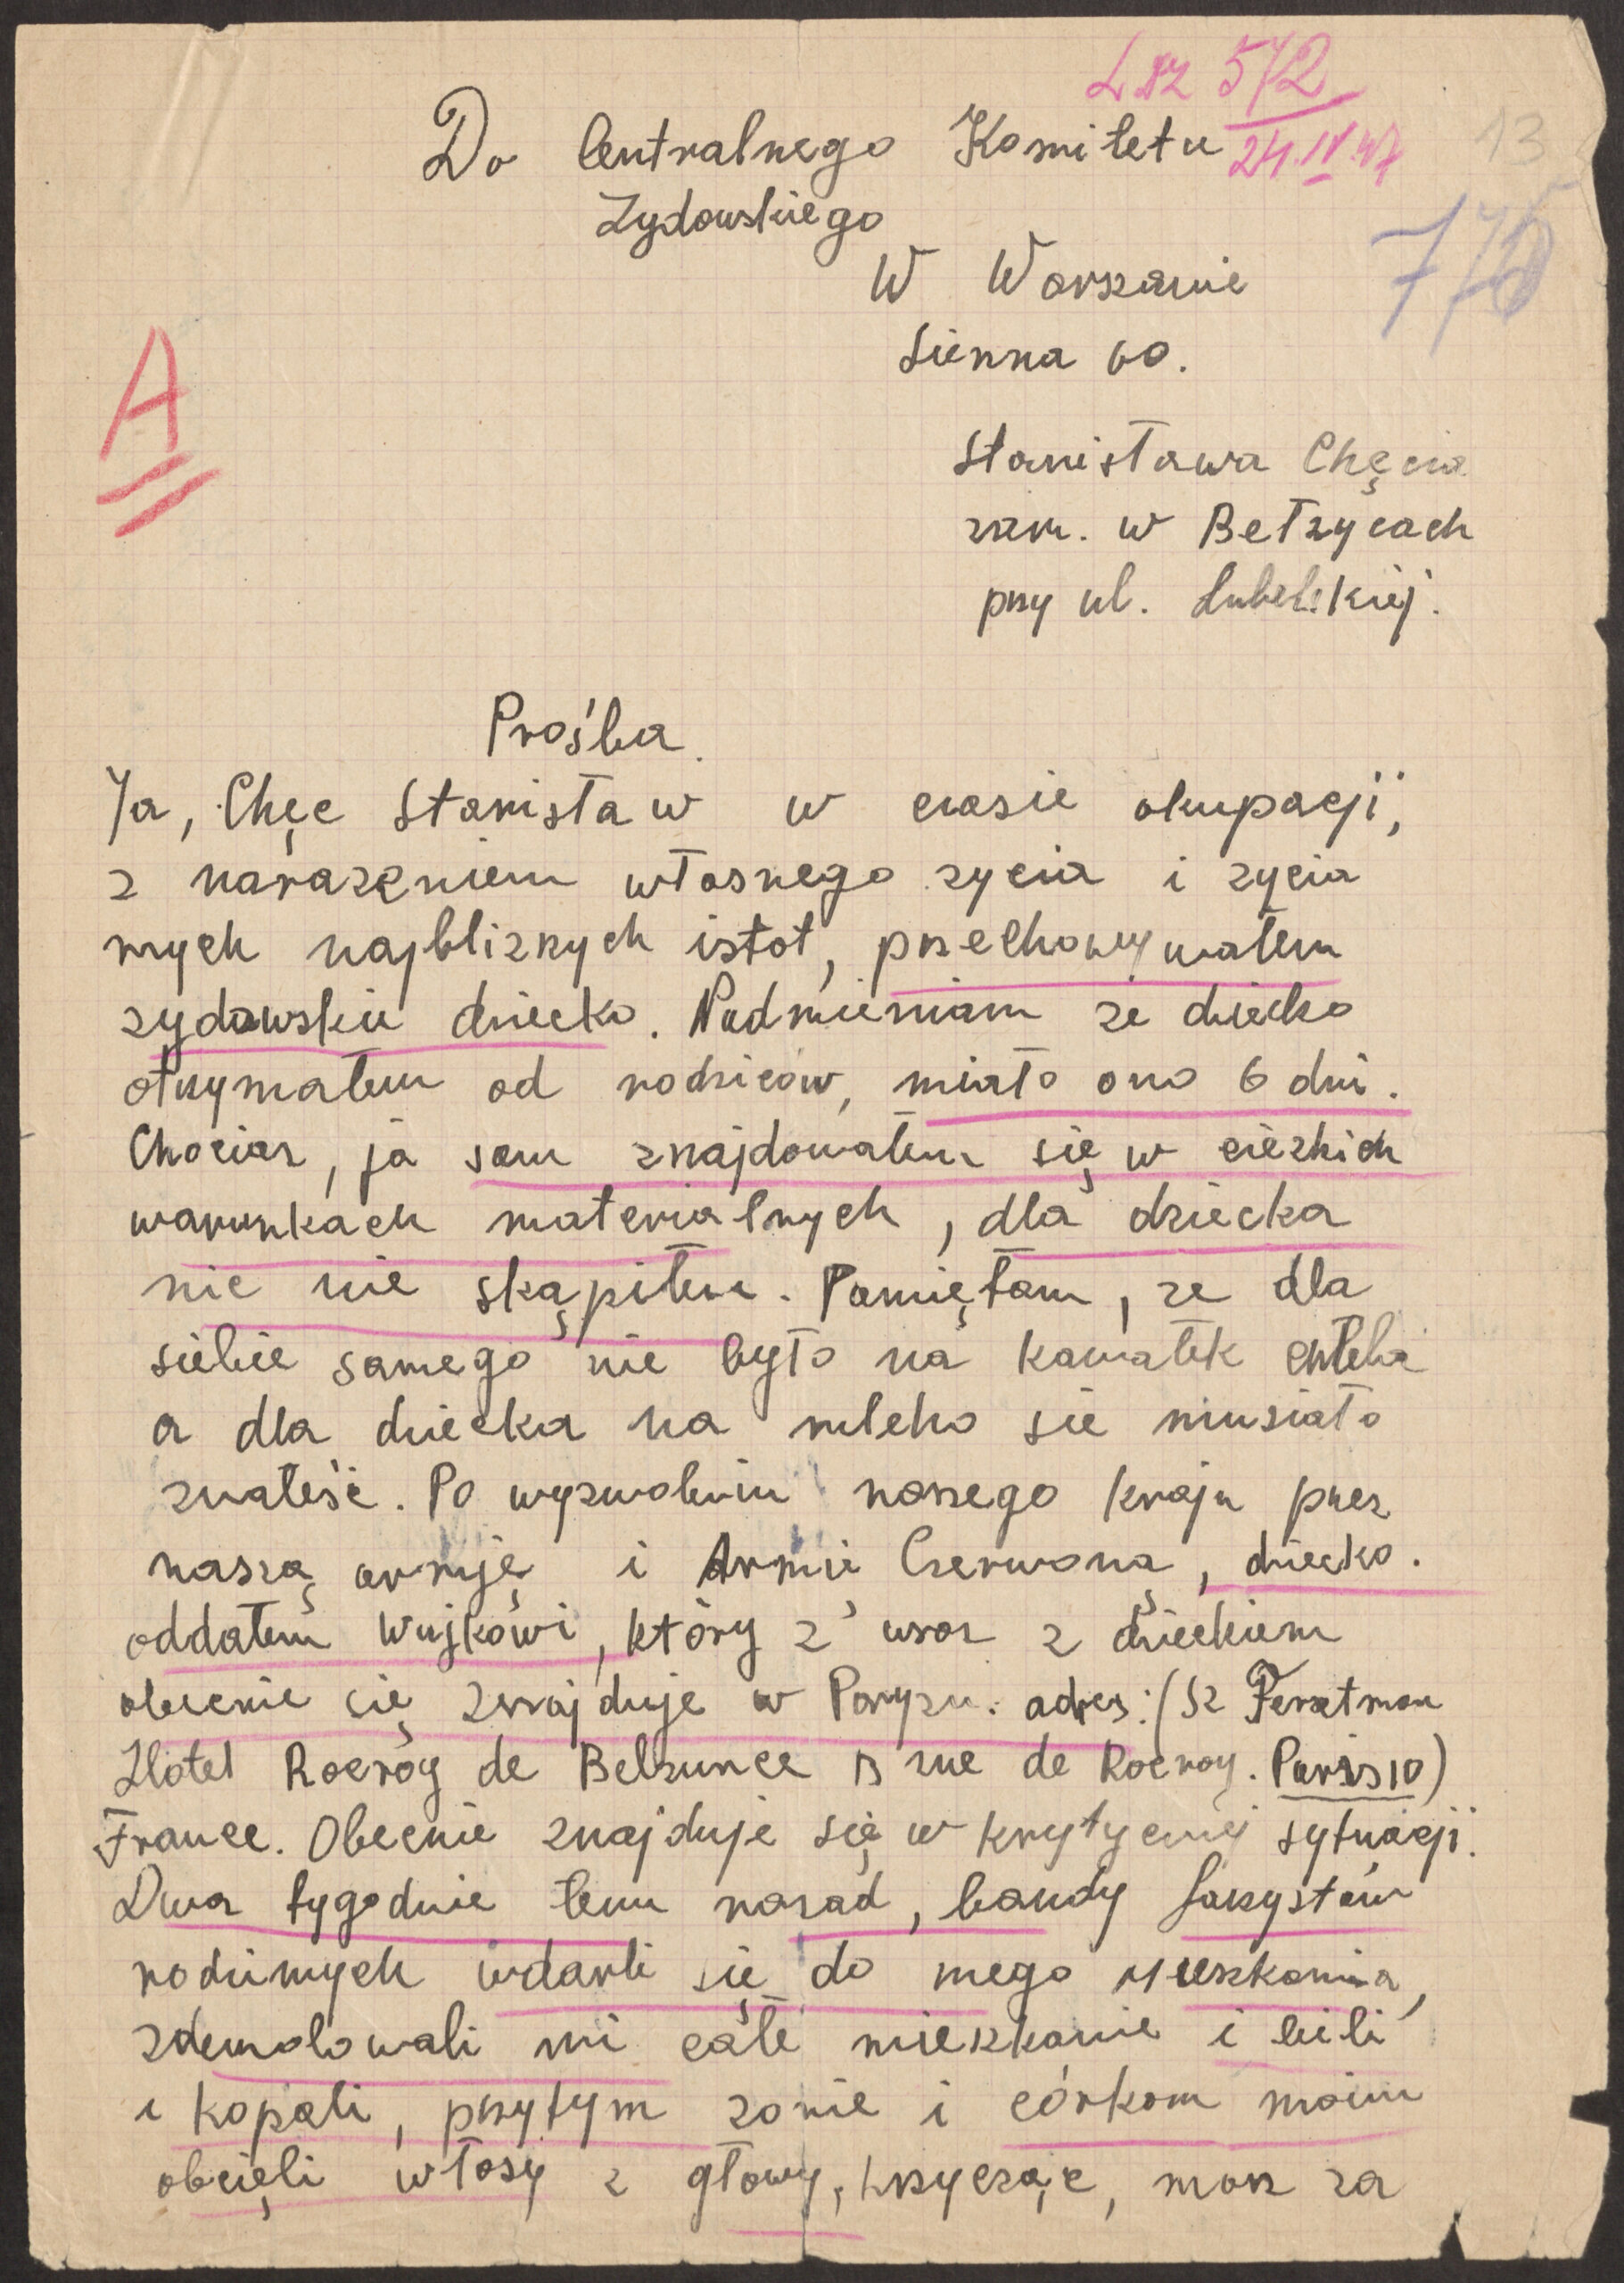 L dz 572
24.IV.47
13
Do Centralnego Komitetu
Zydowskiego
W Warszawie
Sienna 60.
775
A
Stanisława Chęcia
zam. w Bełzycach
przy ul. Lubelskiej.
Prośba.
Ja, Chęc Stanisław w czasie okupacji,
z narazeniem własnego zycia i zycia
mych najblizszych istot, przechowywałem
zydowskie dziecko. Nadmieniam ze dziecko
otrzymałem od rodziców, miało ono 6 dni.
Chociaz, ja sam znajdowałem się w ciezkich
warunkach materialnych, dla dziecka
nic nie skąpiłem. Pamiętam, ze dla
siebie samego nie było na kawałek chleba
a dla dziecka na mleko sie musiało
znaleść. Po wyzwoleniu naszego kraju przez
naszą armję i Armie Czerwoną, dziecko.
oddałem wujkowi, który z wraz z dzieckiem
obecnie się znajduje w Paryzu. adres: (Sz Perntman
Hotel Rocroy de Belzunce 13 rue de Rocroy. Paris 10)
France. Obecnie znajduje się w krytycznej sytuacji.
Dwa tygodnie temu nazad, bandy faszystów
rodzimych wdarli się do mego mieszkania,
zdemolowali mi całe mieszkanie i bili
i kopali, przytym zonie i córkom moim
obcięli włosy z głowy, krzycząc, masz za